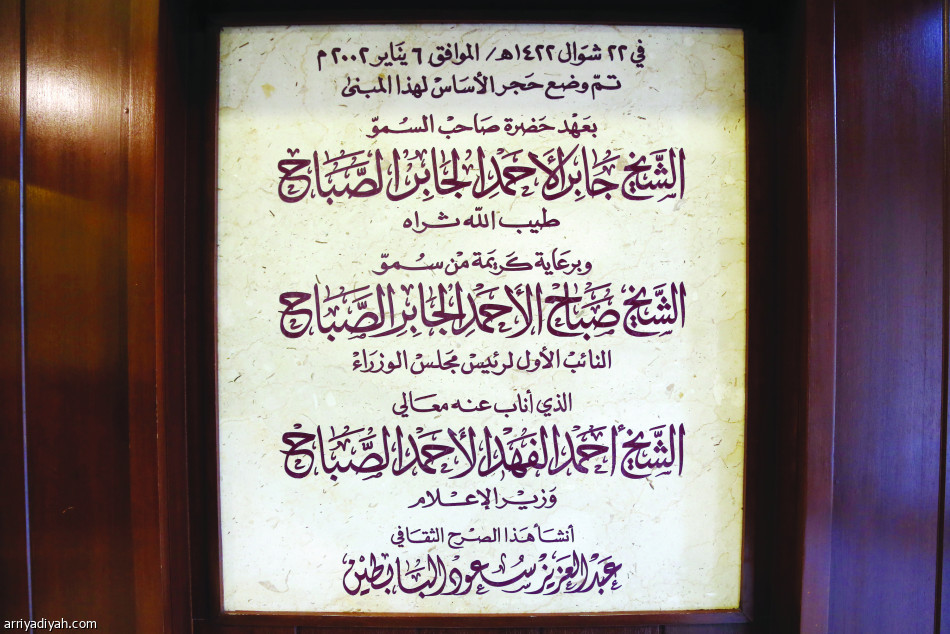 في ٢٢ شوال ١٤٢٢هـ/ الموافق ٦ يناير ٢٠٠٢ م
تمّ وضع حجر الأساس لهذا المبنى
بعَهْد حَضرة صَاحب السـموّ
الشَّيخ جَابر الأَحمَد الجَابر الصَّبَاح
طيب الله ثراه
وبرعَاية كَريمَة منْ سـموّ
الشَّيخ صبَاح الأحمَد الجَابر الصَّبَاح
النائب الأول لرئيس مجلس الوزراء
الذي أناب عنه معالي
الشَّيخ أحمَد الفهد الأحمَد الصَّبَاح
وَزير الإعلام
أنشأ هذا الصرح الثقافي
عَبد العَزيز سـعود البَابطين
arriyadiyah.com